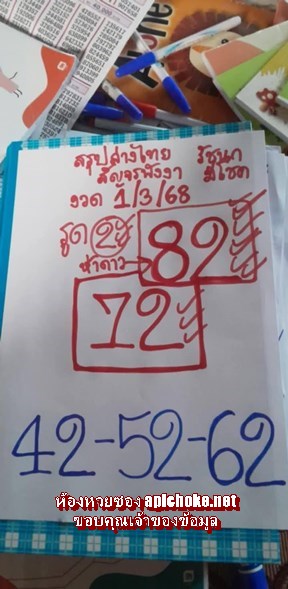 สรุปล่างไทย รัชนก
สัญจรพังงา มีโชค
งวด 1/3/68
รูด 2
82
ห้าดาว
72
42-52-62
ห้องหวยซอง apichoke.net
ขอบคุณเจ้าของข้อมูล